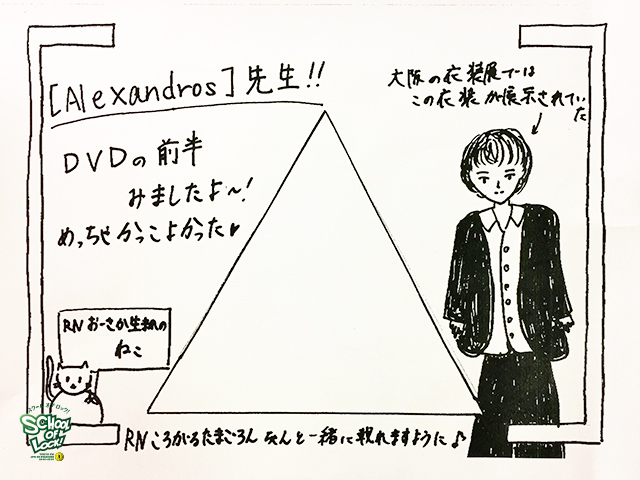 [Alexandros]先生!!
大阪の衣装展では
この衣装が展示されてい
た
DVDの前半
みましたよ〜!
めっちゃかっこよかった♥
RN おーさか生まれの
ねこ
スクール オブ ロック!
SCHOOL
OF
LOCK!
RN ころがるたまごろん さんと一緒に載れますように♪